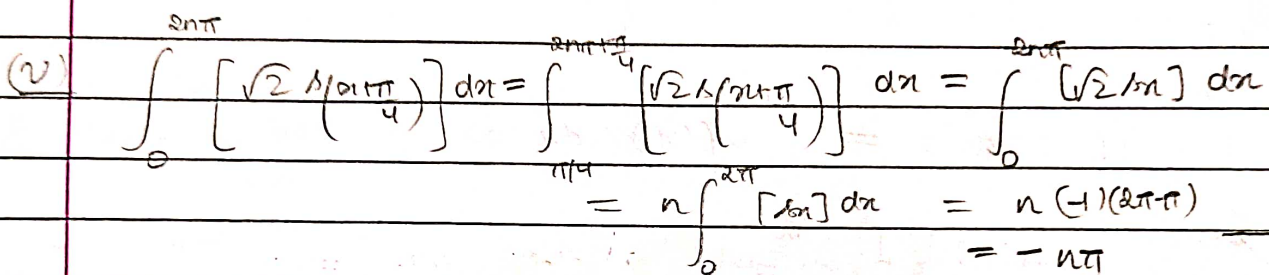 (v) ∫_0^{2nπ} [√2 s(x+π/4)] dx = ∫_{π/4}^{2nπ+π/4} [√2 s(x+π/4)] dx = ∫_0^{2nπ} [√2 sx] dx
= n∫_0^{2π} [sx] dx = n(-1)(2π-π)
= -nπ